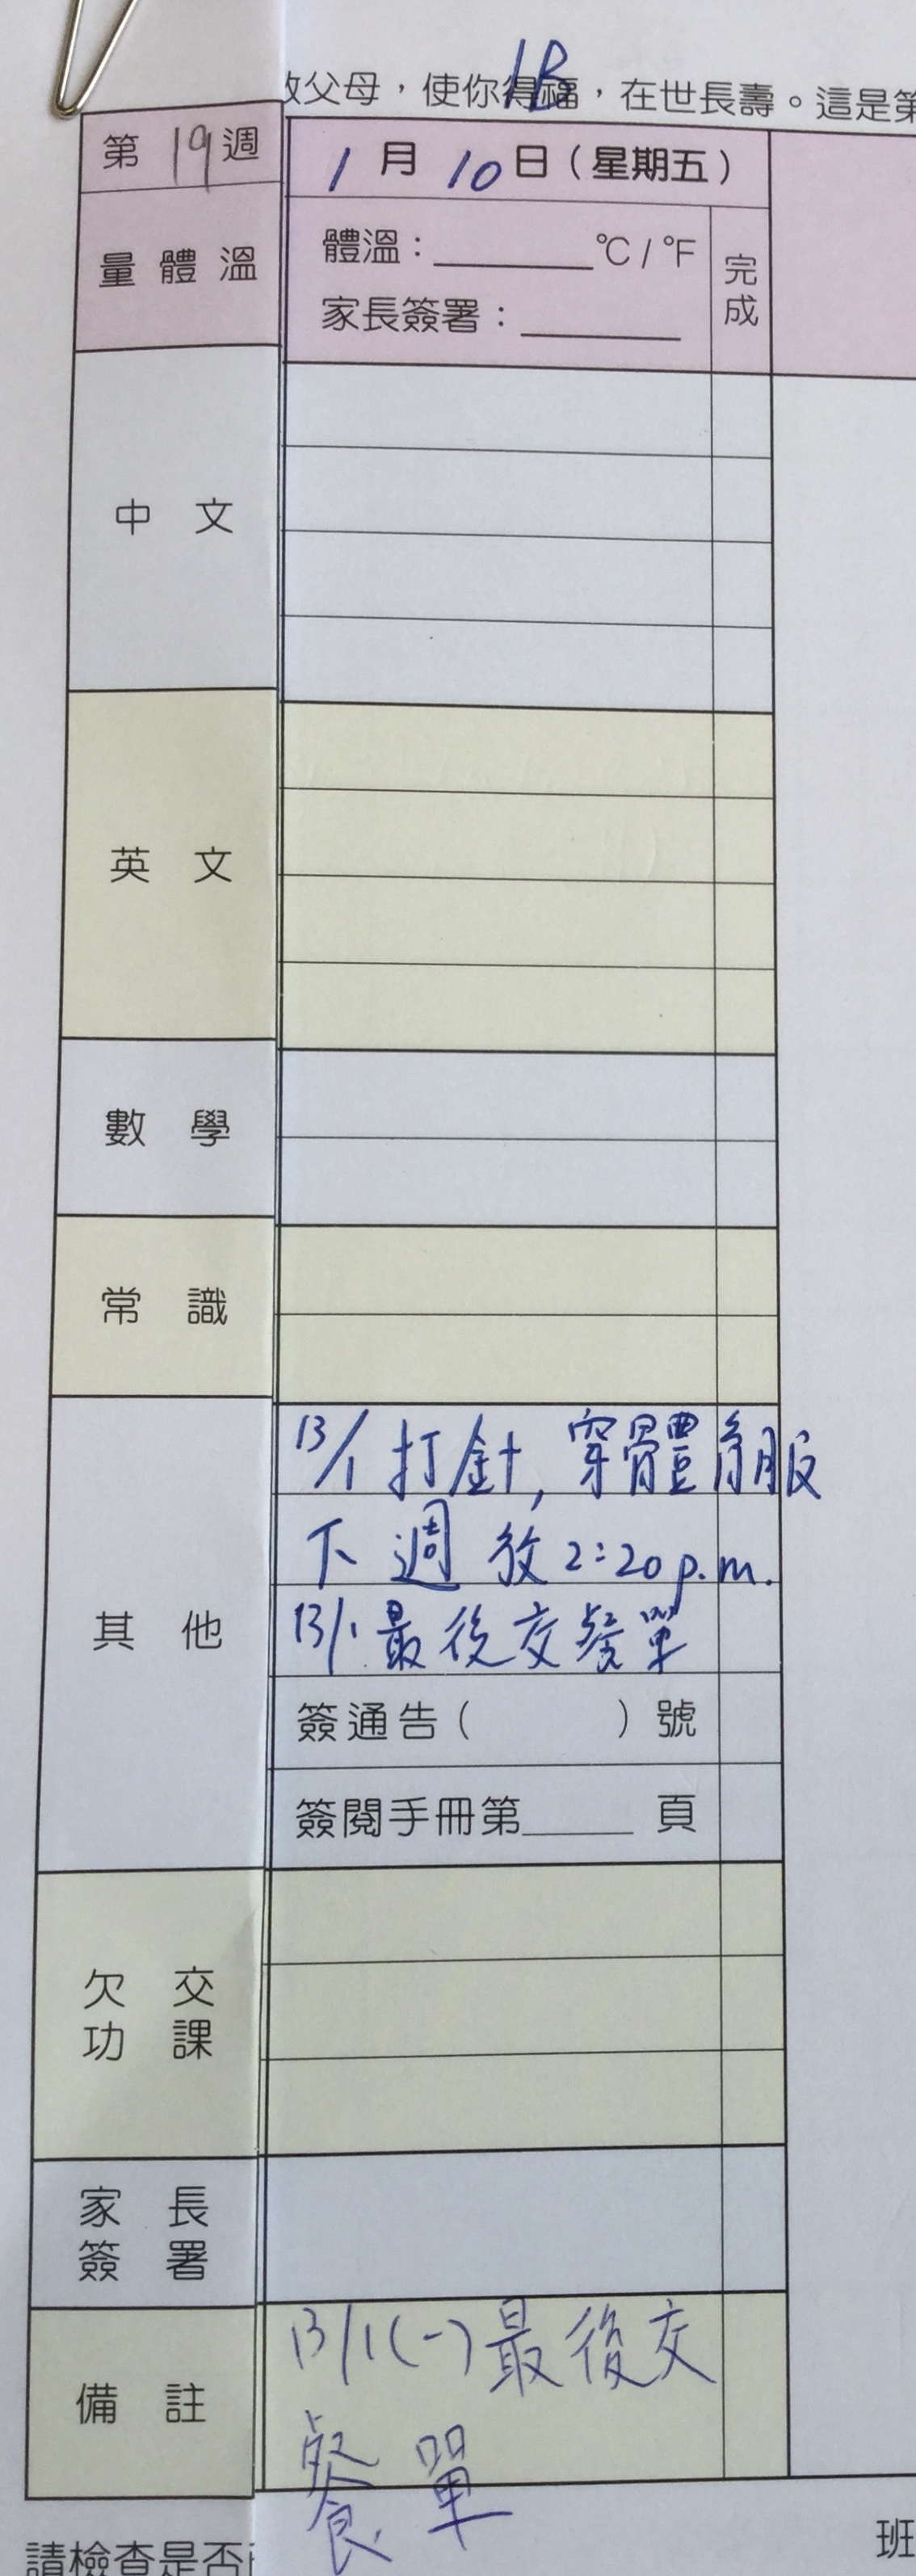 1B
父母，使你得福，在世長壽。這是第
第 19 週
1 月 10 日（星期五）
量體溫
體溫：______℃/℉
家長簽署：______
完成
中文
英文
數學
常識
其他
13/1 打針, 穿體育服
下週放 2:20 p.m.
13/1 最後交餐單
簽通告（　　　）號
簽閱手冊第_____頁
欠交
功課
家長
簽署
備註
13/1(一)最後交
餐單
請檢查是否
班